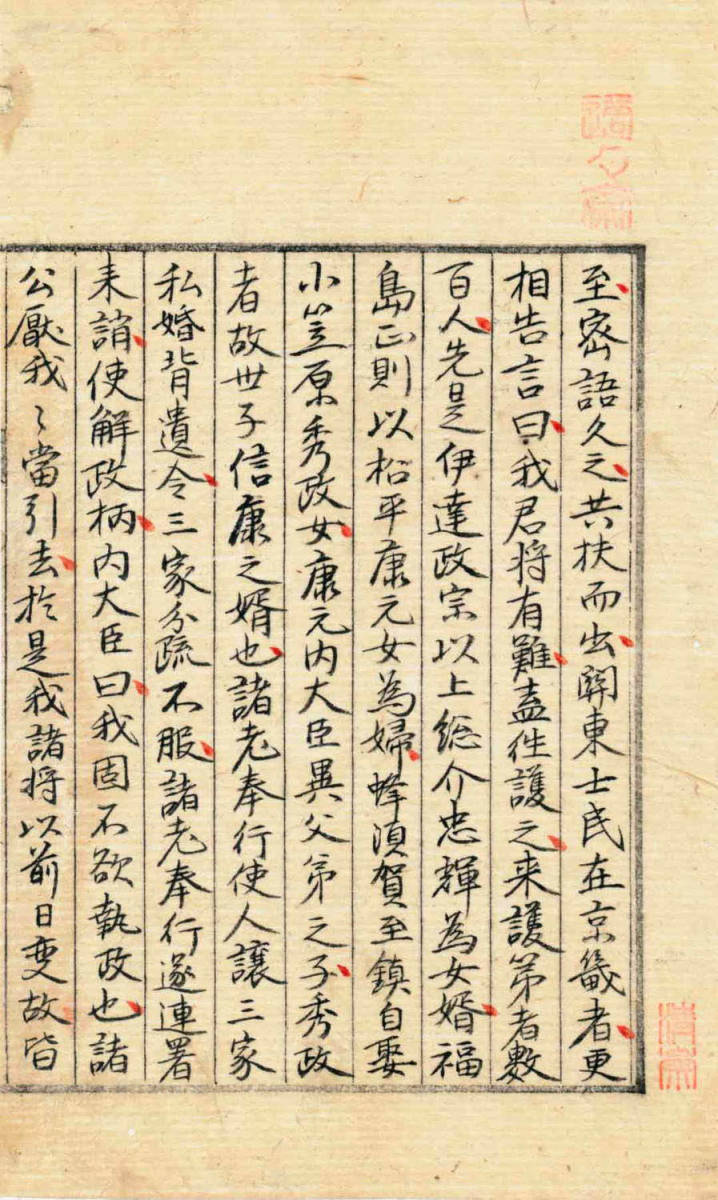 至密語久之共扶而出関東士民在京畿者更
相告言曰我君将有難盍往護之来護第者數
百人先是伊達政宗以上総介忠輝為女婿福
島正則以松平康元女為婦蜂須賀至鎮自娶
小笠原秀政女康元内大臣異父弟之子秀政
者故世子信康之婿也諸老奉行使人讓三家
私婚背遺令三家分疏不服諸老奉行遂連署
来誚使解政柄内大臣曰我固不欲執政也諸
公厭我〻當引去於是我諸将以前日变故皆